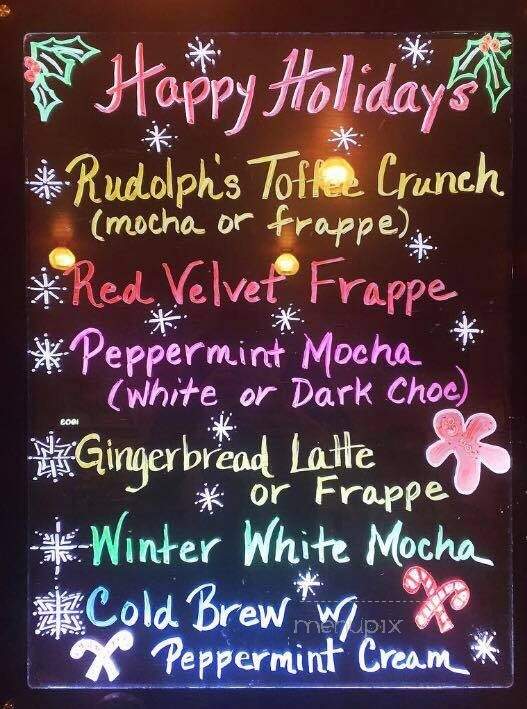 Happy Holidays
Rudolph's Toffee Crunch
(mocha or frappe)
Red Velvet Frappe
Peppermint Mocha
(White or Dark Choc)
Gingerbread Latte
or Frappe
Winter White Mocha
Cold Brew w/
Peppermint Cream
menupix